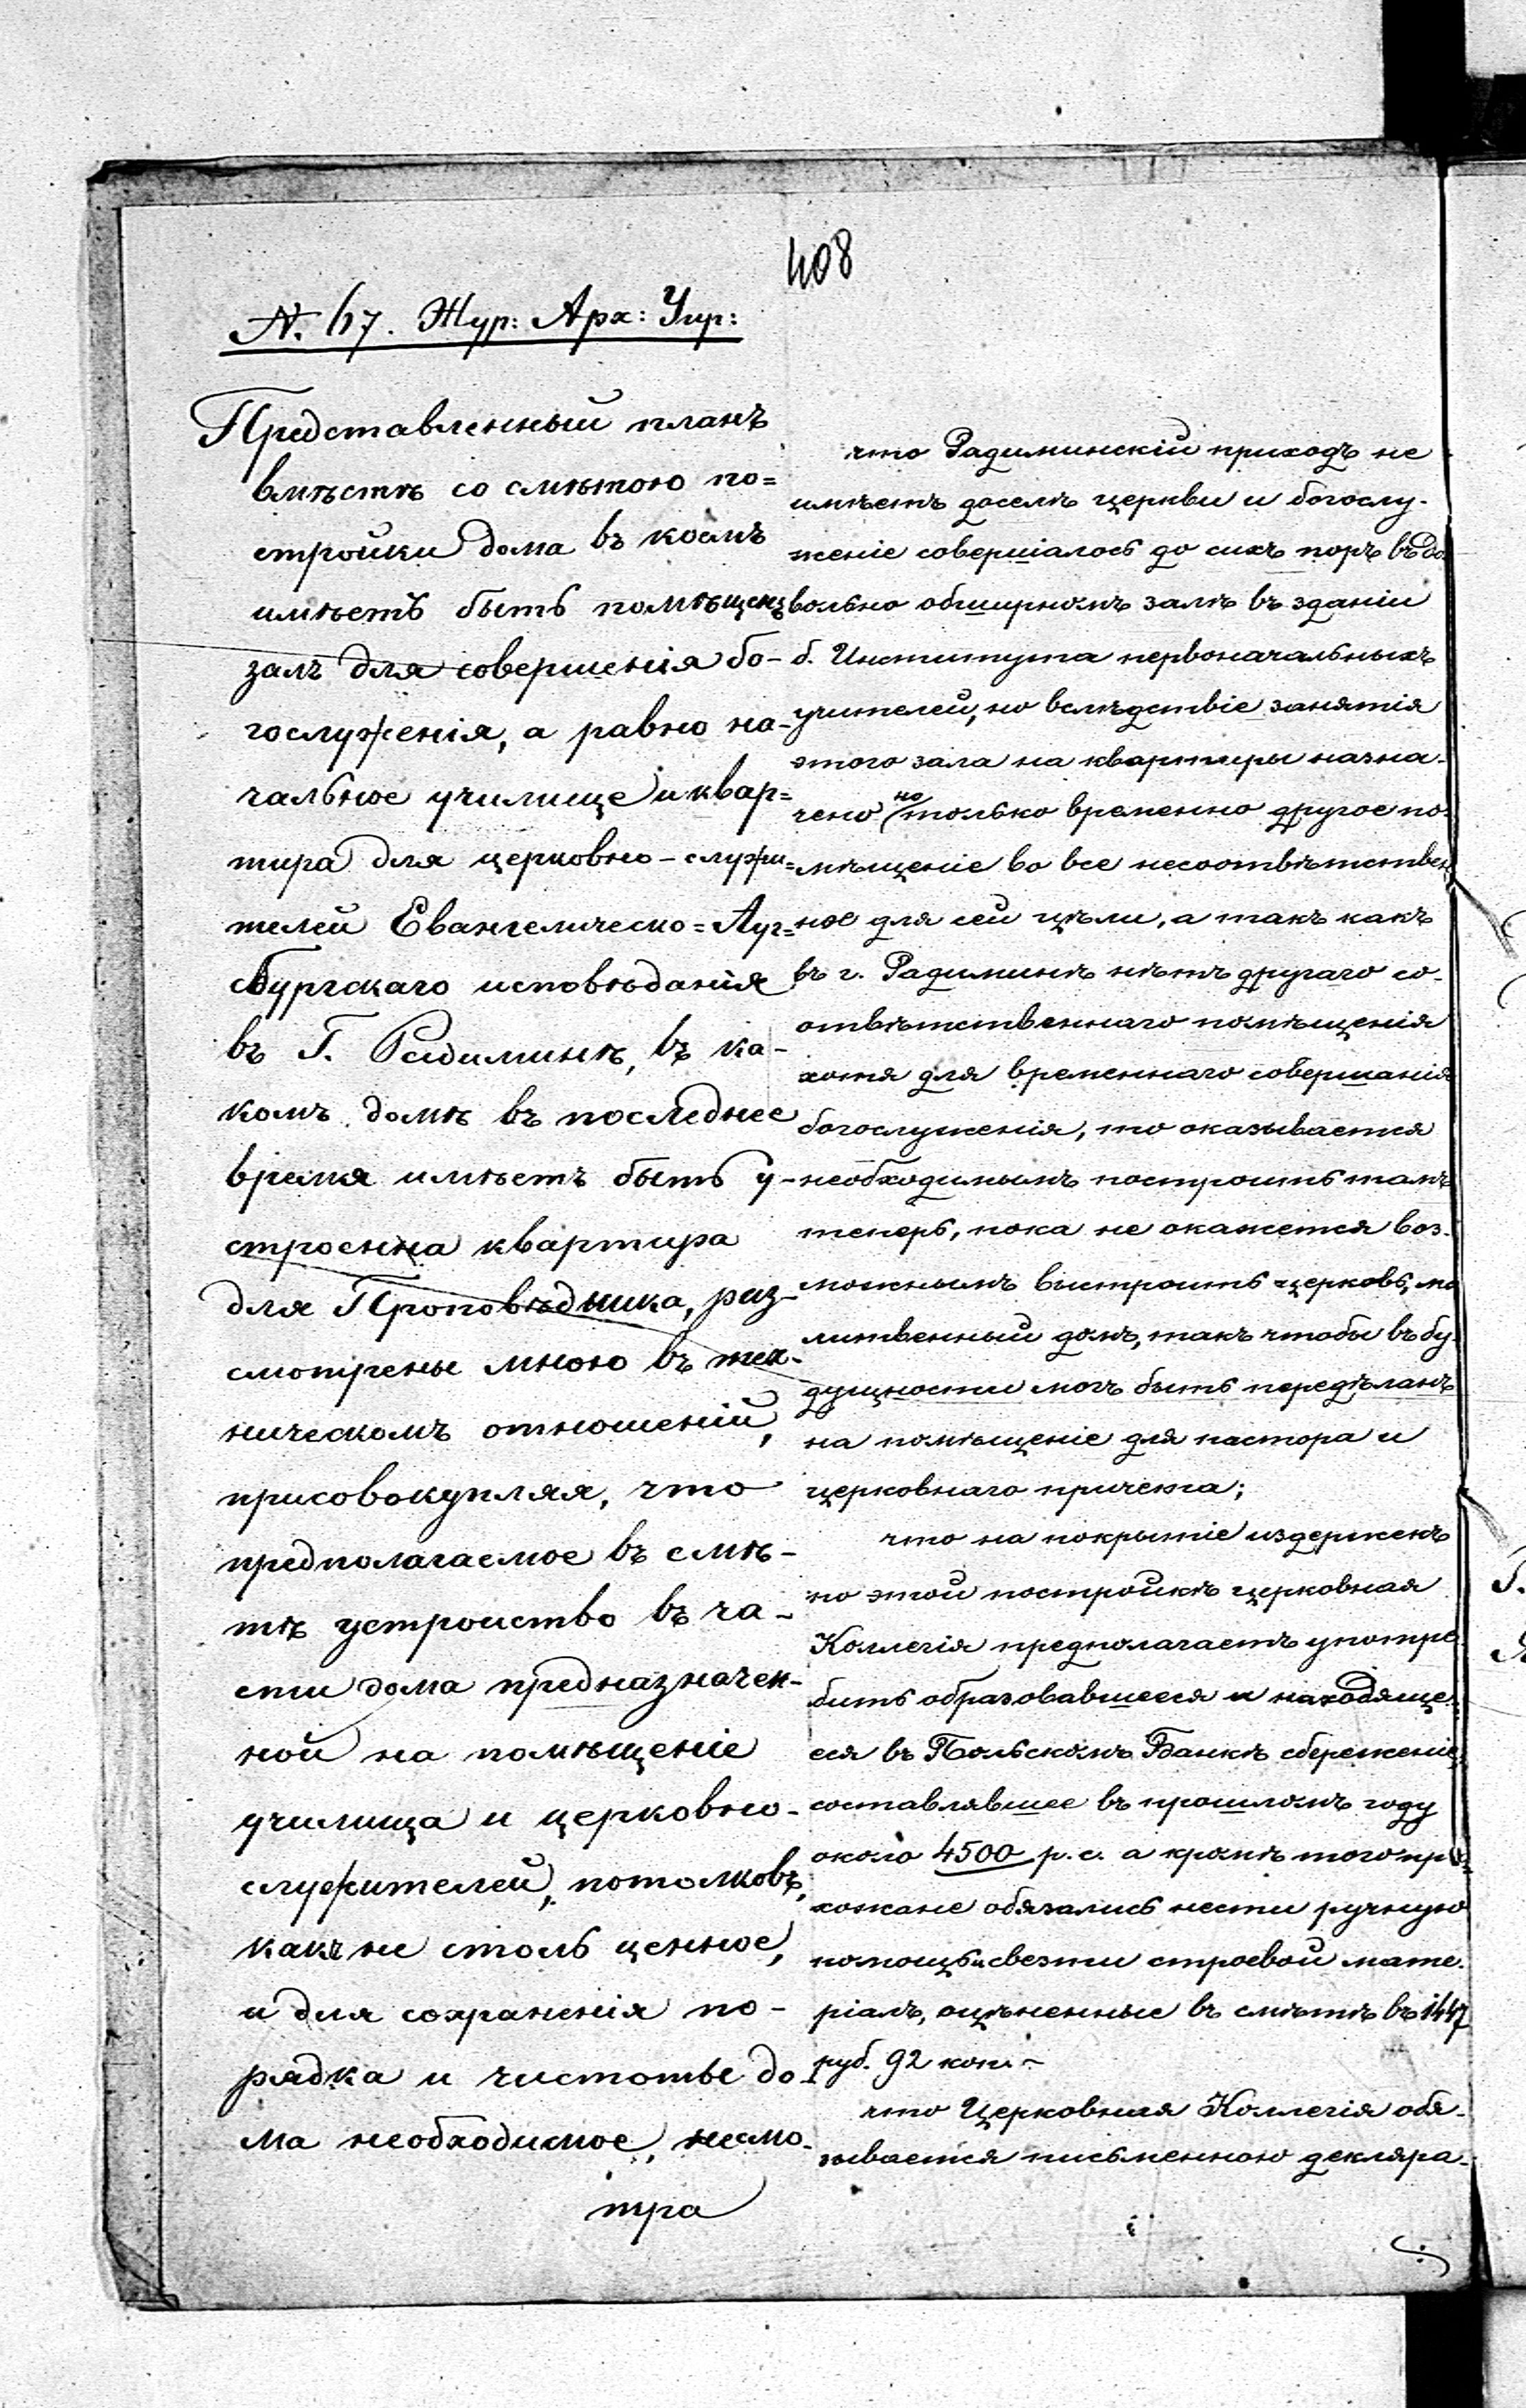 408
N. 67. Жур: Арх: Упр:
Представленный планъ
вмѣстѣ со смѣтою по=
стройки дома въ коемъ
имѣетъ быть помѣщенъ
залъ для совершенія бо-
гослуженія, а равно на-
чальное училище и квар=
тира для церковно-служи=
телей Евангелическо=Ауг=
сбургскаго исповѣданія
въ Г. Радиминѣ, въ ка-
комъ домѣ въ последнее
время имѣетъ быть у-
строенна квартира
для Проповѣдника, раз-
смотрены мною въ тех-
ническомъ отношеніи,
присовокупляя, что
предполагаемое въ смѣ-
тѣ устройство въ ча-
сти дома предназначен-
ной на помѣщеніе
училища и церковно-
служителей, потолковъ,
какъ не столь ценное,
и для сохраненія по-
рядка и чистотые до-
ма необходимое, несмо-
тра
что Радиминскій приходъ не
имѣетъ доселѣ церкви и богослу-
женіе совершалось до сихъ поръ въ до-
вольно обширномъ залѣ въ зданіи
б. Института первоначальныхъ
учителей, но вслѣдствіе занятія
этого зала на квартиры назна-
чено но только временно другое по-
мѣщеніе во все несоотвѣтствен
ное для сей цѣли, а такъ какъ
въ г. Радиминѣ нѣтъ другаго со-
отвѣтственнаго помѣщенія
хотя для временнаго совершанія
богослуженія, то оказывается
необходимымъ построить тамъ
теперь, пока не окажется воз-
можнымъ выстроить церковь, мо
литвенный домъ, такъ чтобы въ бу-
дущности могъ быть передѣланъ
на помѣщеніе для пастора и
церковнаго причета;
что на покрытіе издержекъ
по этой постройкѣ церковная
Коллегія предполагаетъ употре
бить образовавшееся и находяще-
еся въ Польскомъ Банкѣ сбереженіе,
составлявшее въ прошломъ году
около 4500 р. с. а кромѣ того при
хожане обязались нести ручную
помощь и свезти строевой мате-
ріалъ, оцѣненные въ смѣтѣ въ 1447
руб. 92 коп. -
что Церковная Коллегія обя-
зывается письменною декляра-